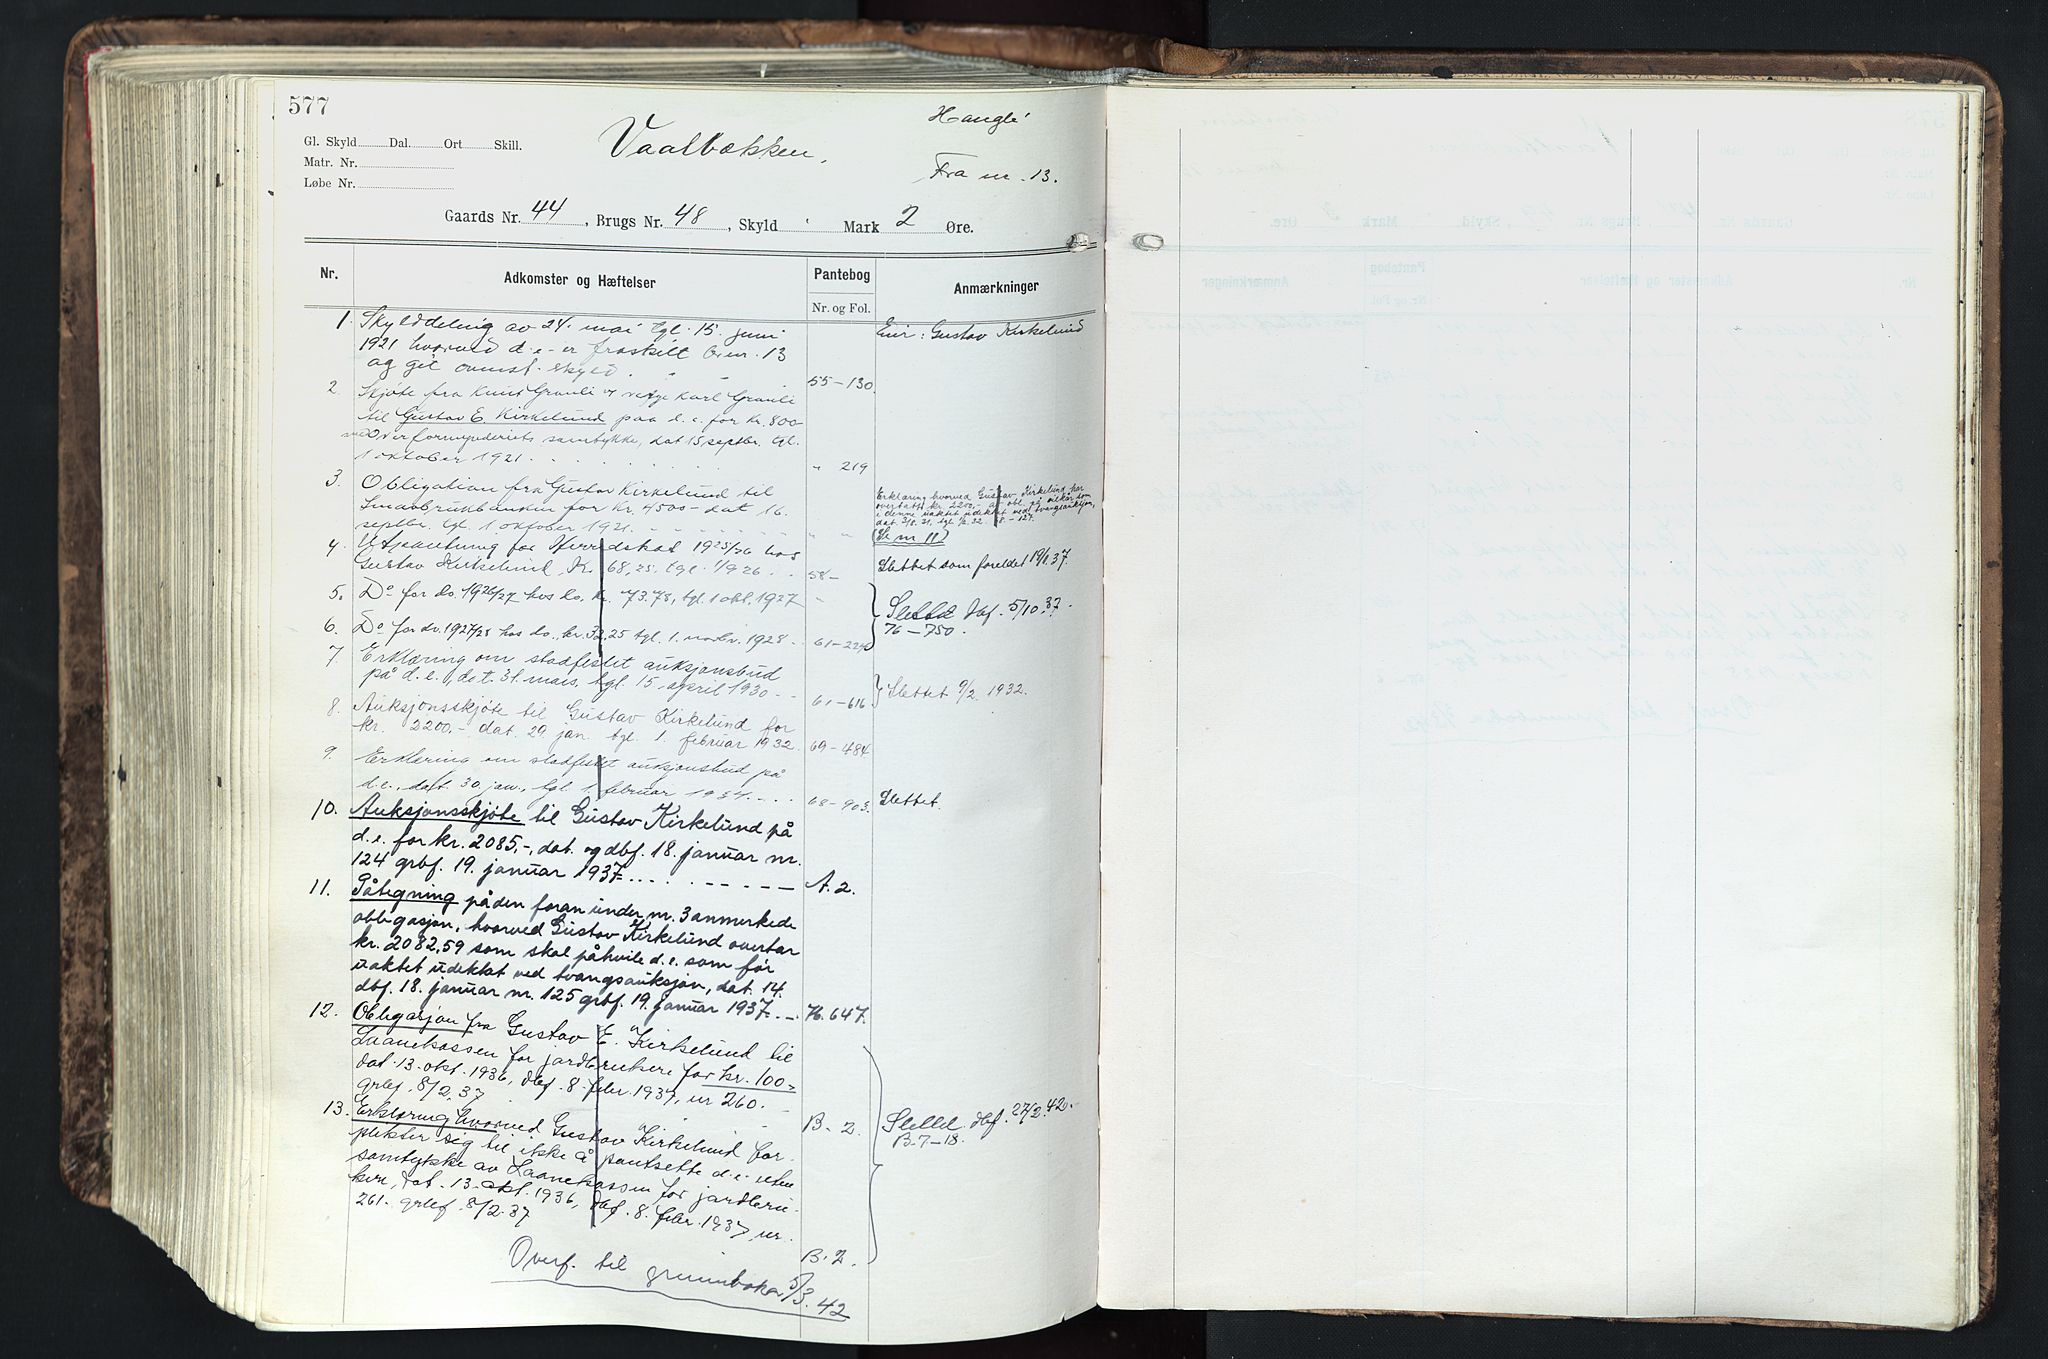 577
Gl. Skyld Dal. Ort Skill.
Matr. Nr.
Løbe Nr.
Vaalbækken.
Fra nr. 13.
Gaards Nr. 44, Brugs Nr. 48, Skyld Mark 2 Øre.
Nr. Adkomster og Hæftelser Pantebog Anmærkninger
Nr. og Fol.
1. Skylddeling av 24. mai tgl. 15. juni Eier: Gustav Kirkelund
1921 hvorved d. e. er fraskilt br. nr. 13
og git ovenst. skyld. 55-130
2. Skjøte fra Knut Granli og verge Karl Granli
til Gustav E. Kirkelund paa d. e. for kr. 800
med overformynderiets samtykke, dat 15 septbr. tgl.
1 oktober 1921. " 219
3. Obligation fra Gustav Kirkelund til
Smaabrukbanken for kr. 4500- dat 16.
septbr. tgl. 1 oktober 1921. " "
Erklæring hvorved Gustav Kirkelund har
overtatt kr. 2200,- av obl. på vilkår som
i denne uaktet udekket ved tvangsauksjon,
dat. 3/8. 31, tgl. 1/2. 32. 68-127.
(Se nr 11)
4. Utpantning for Herredskat 1925/26 hos
Gustav Kirkelund, Kr. 68,25, tgl. 1/1926. 58- Slettet som foreldet 19/1.37.
5. Do for do. 1926/27 hos do. kr. 73.78, tgl. 1 okt. 1927 "
Slettet dbf. 5/10.37.
6. Do for do. 1927/28 hos do., kr. 32,25 tgl. 1. novbr. 1928 61-224
76-750.
7. Erklæring om stadfestet auksjonsbud
på d. e., dat. 31. mars, tgl. 15. april 1930 61-616 Slettet 9/2. 1932.
8. Auksjonsskjøte til Gustav Kirkelund for
kr. 2200,- dat. 29. jan. tgl. 1. februar 1932. 69-484
9. Erklæring om stadfestet auksjonsbud på
d. e., dat. 30. jan., tgl. 1. februar 1934. 68-903. Slettet.
10. Auksjonsskjøte til Gustav Kirkelund på
d. e. for kr. 2085,-, dat. og dbf. 18. januar nr.
124 grbf. 19. januar 1937. A. 2.
11. Påtegning på den foran under nr. 3 anmerkede
obligasjon, hvorved Gustav Kirkelund overtar
kr. 2082,59 som skal påhvile d. e. som før
uaktet udekket ved tvangsauksjon, dat. 14.
dbf. 18. januar nr. 125 grbf. 19. januar 1937. 76. 647.
12. Obligasjon fra Gustav E. Kirkelund til
Lånekassen for jordbrukere for kr. 100=
dat. 13. okt. 1936, dbf. 8. febr. 1937, nr 260.
grbf. 8/2.37 B. 2
Slettet dbf. 27/2.42.
B. 7-18.
13. Erklæring hvorved Gustav Kirkelund for-
plikter sig til ikke å pantsette d. e. uten
samtykke av Laanekassen for jordbru-
kere, dat. 13. okt. 1936, dbf. 8. febr. 1937, nr.
261. grbf. 8/2.37 B. 2.
Overf. til grunnboka 5/3. 42